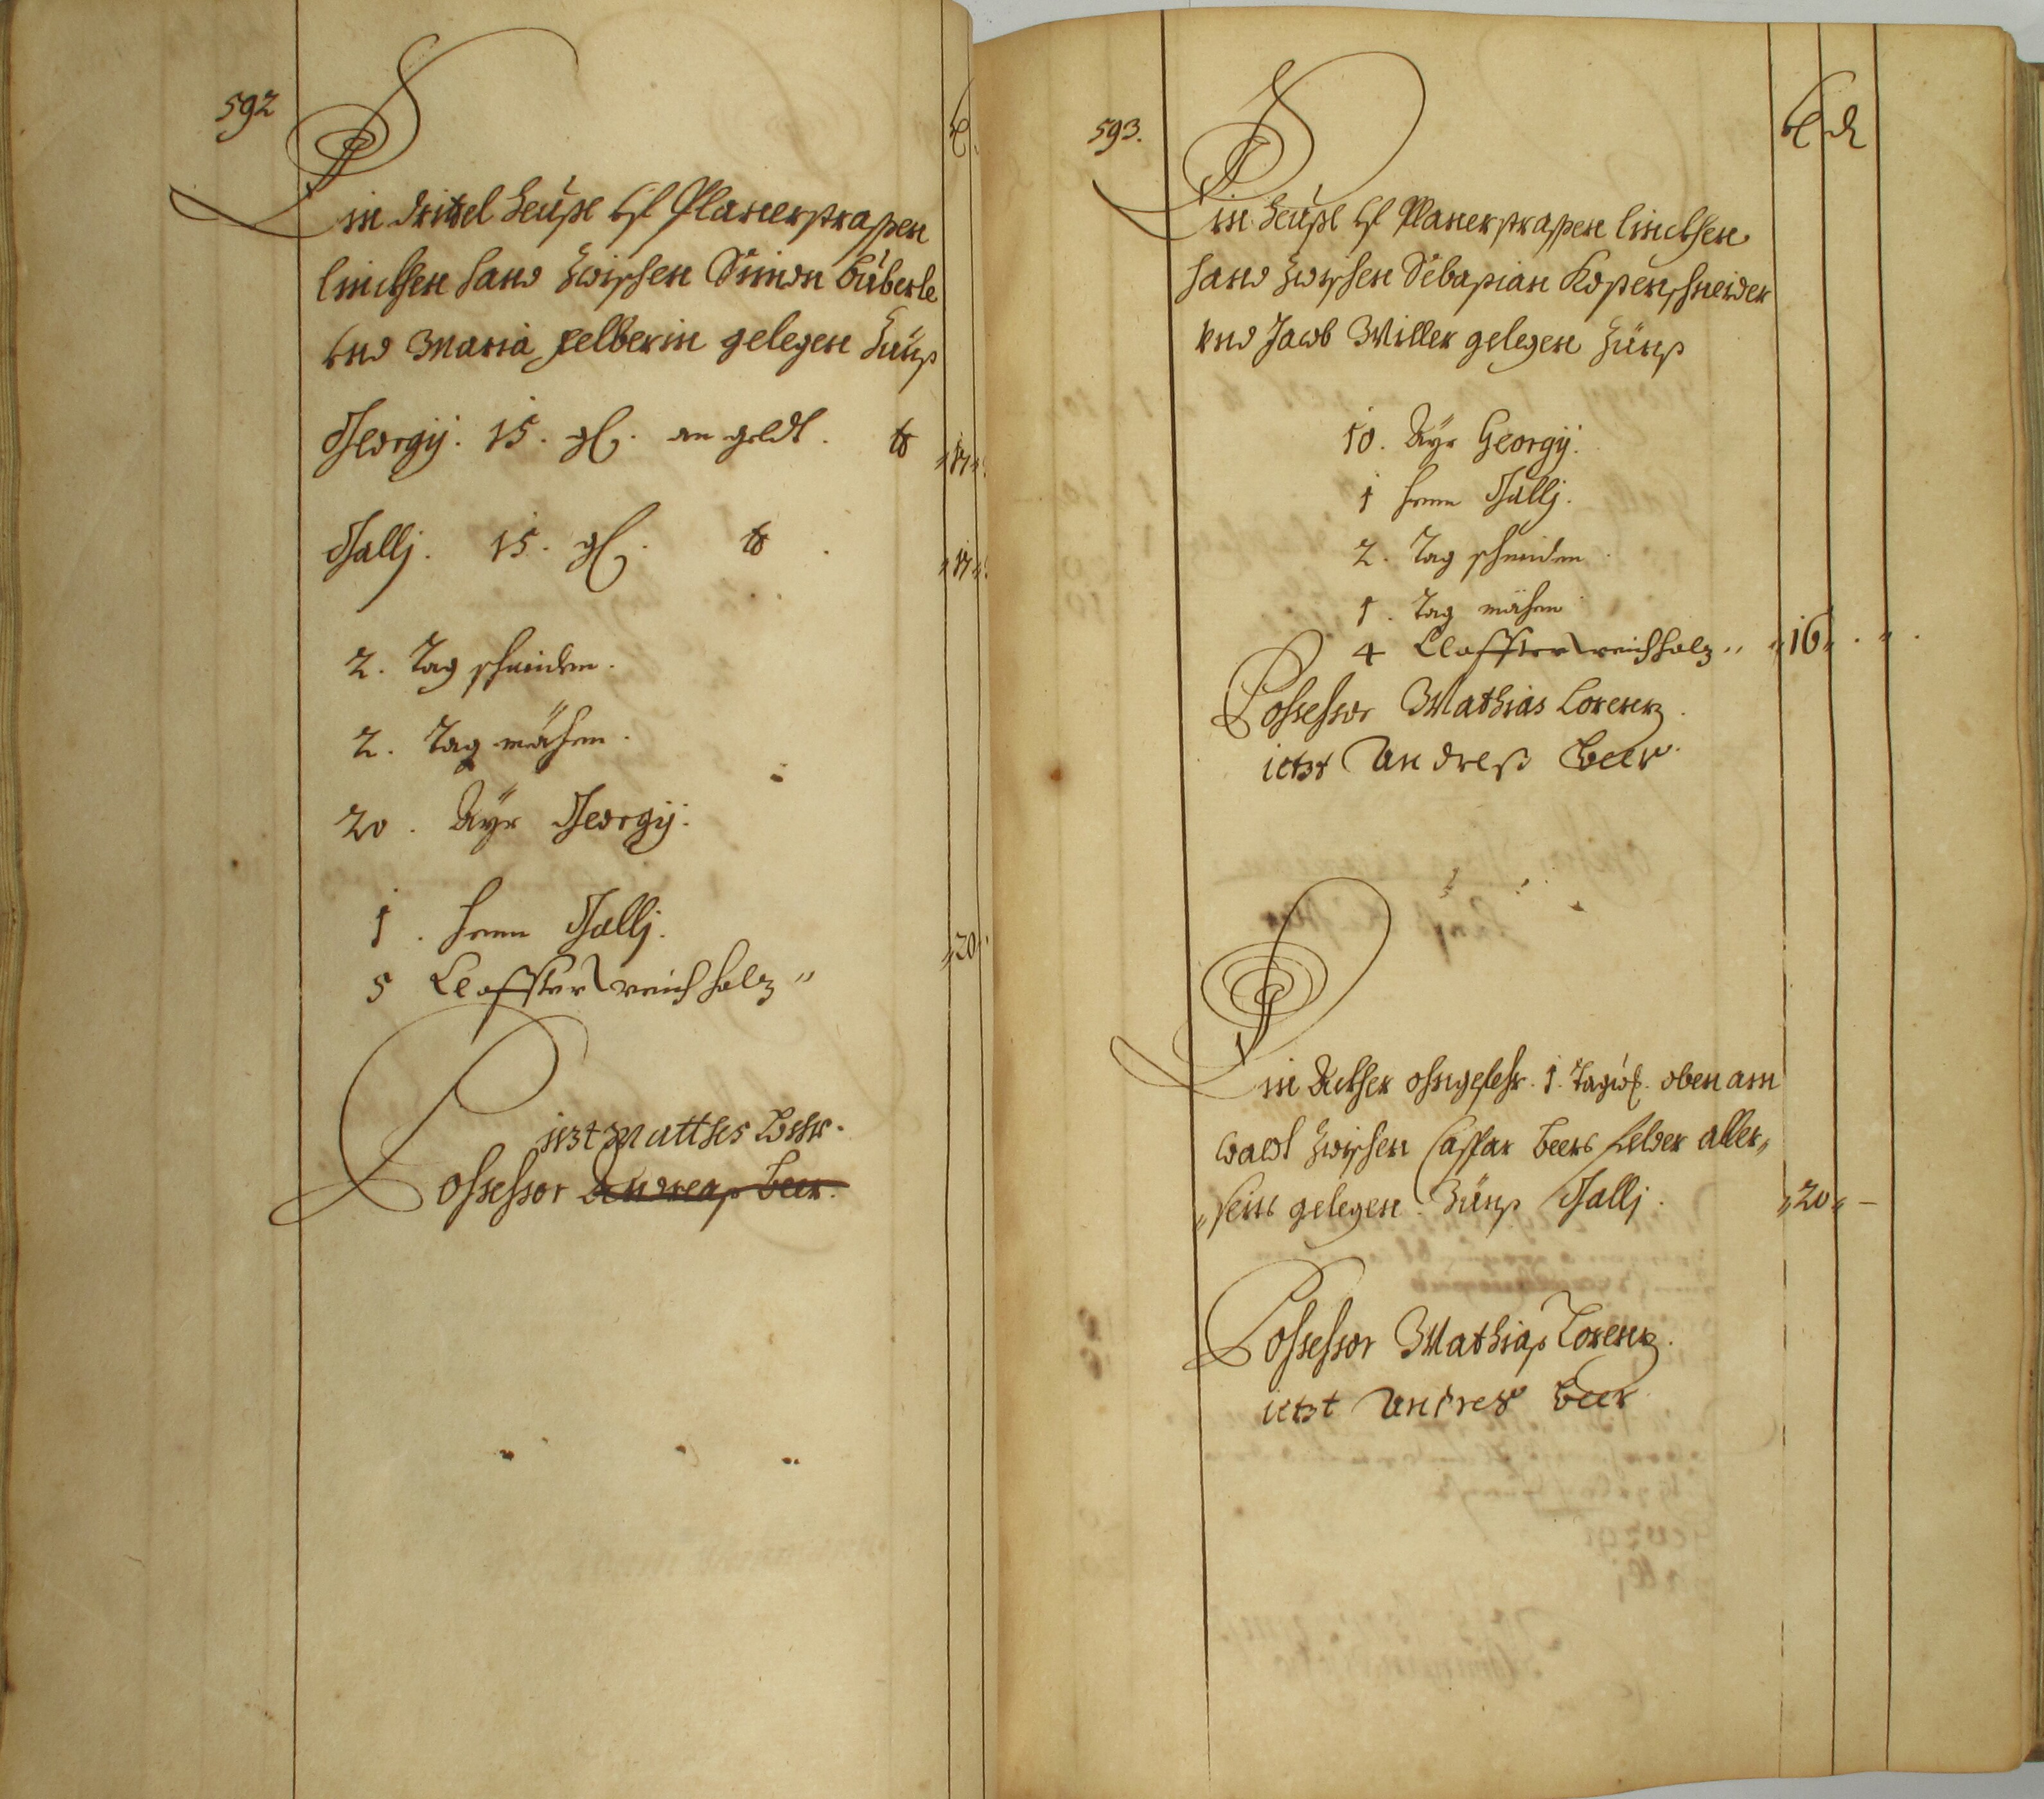 592
Ein drittel Heußl bſ Planerstraßen
linckhen hand zwischen Simon Büberle
vnd Maria Felberin gelegen Zünß
Georgij. 15. gl. an geldt. tt „17„
Gallj. 15. gl. tt „17„
2. Tag schneiden.
2. Tag mähen.
20. Ayr Georgij.
1. Henn Gallj.
„20
5 Claffter reichholz„
iezt Matthes Beer.
Possessor Andreaß Beer.
593.
Ein Heußl bſ Planerstraßen linckhen
hand zwischen Sebastian Kostenschneider
vnd Jacob Miller gelegen Zünß
10. Ayr Georgij.
1 Henn Gallj.
2. Tag schneiden.
1. Tag mähen
4 Claffter reichholz„ „16„
Possessor Mathias Lorenz.
ietzt Andreß Beer.
Ein Ackher ohngefehr. 1. Tagw. oben am
Waldt zwischen Caspar Beers Felder aller„
„seits gelegen. Zünß Gallj. „20„ –
Possessor Mathiaß Lorenz.
ietzt Andres Beer